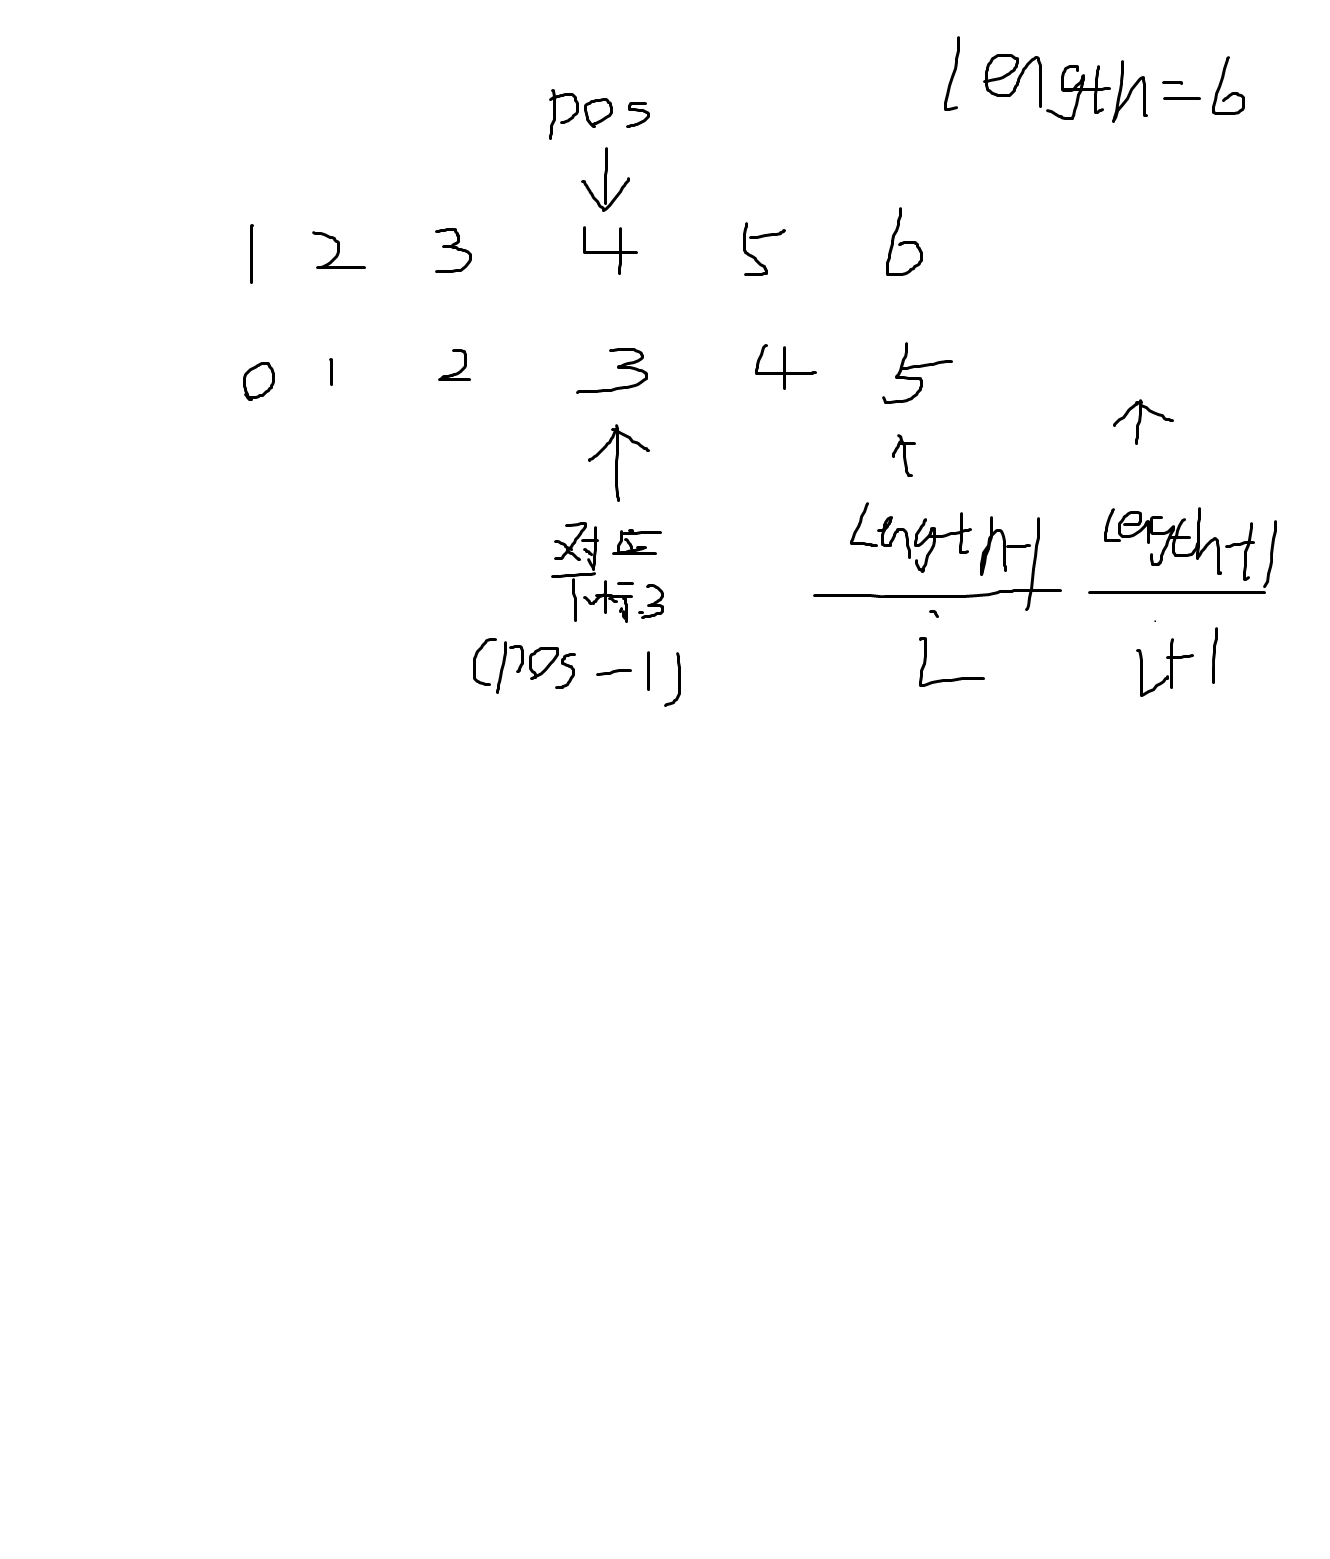 length=6
pos
1 2 3 4 5 6
0 1 2 3 4 5
对应
下标3
(pos-1)
Length-1
Length+1
i
i+1